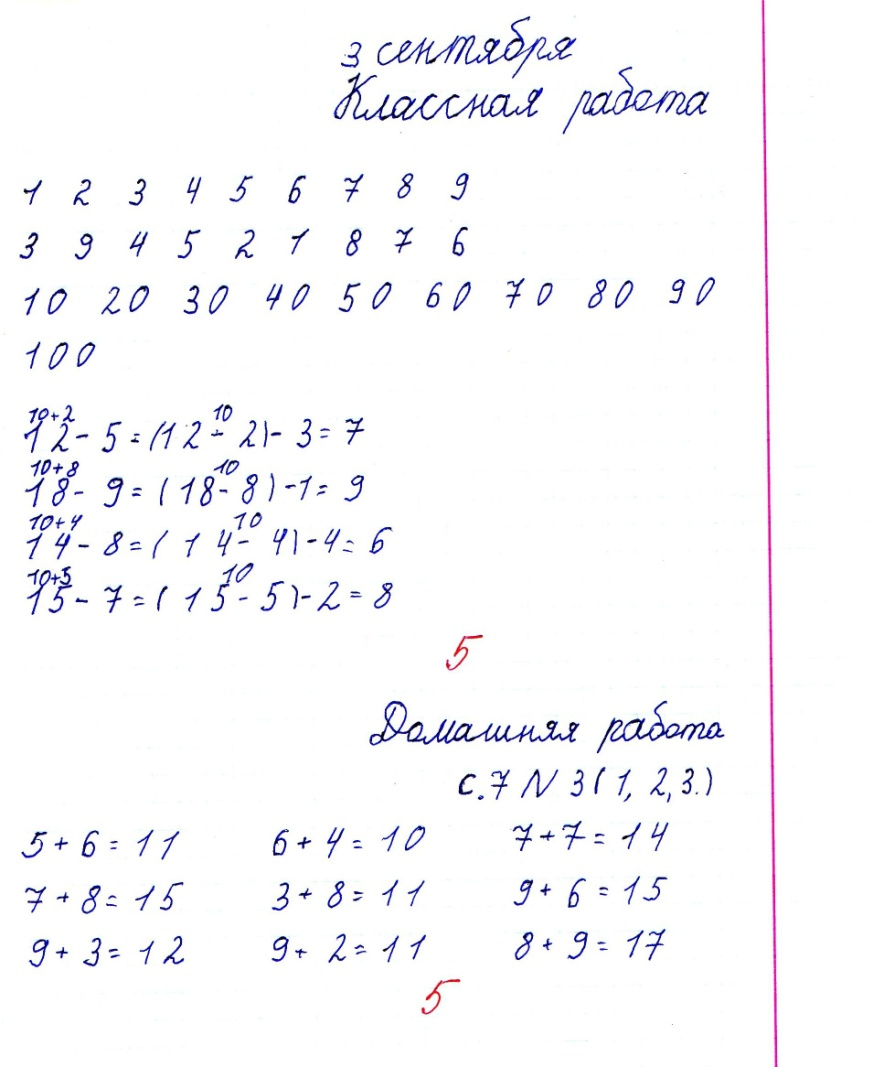 3 сентября
Классная работа
1 2 3 4 5 6 7 8 9
3 9 4 5 2 1 8 7 6
10 20 30 40 50 60 70 80 90
100
10+2 10
12 - 5 = (12 - 2) - 3 = 7
10+8 10
18 - 9 = (18 - 8) - 1 = 9
10+4 10
14 - 8 = (14 - 4) - 4 = 6
10+5 10
15 - 7 = (15 - 5) - 2 = 8
5
Домашняя работа
с.7 N 3 (1, 2, 3.)
5 + 6 = 11 6 + 4 = 10 7 + 7 = 14
7 + 8 = 15 3 + 8 = 11 9 + 6 = 15
9 + 3 = 12 9 + 2 = 11 8 + 9 = 17
5